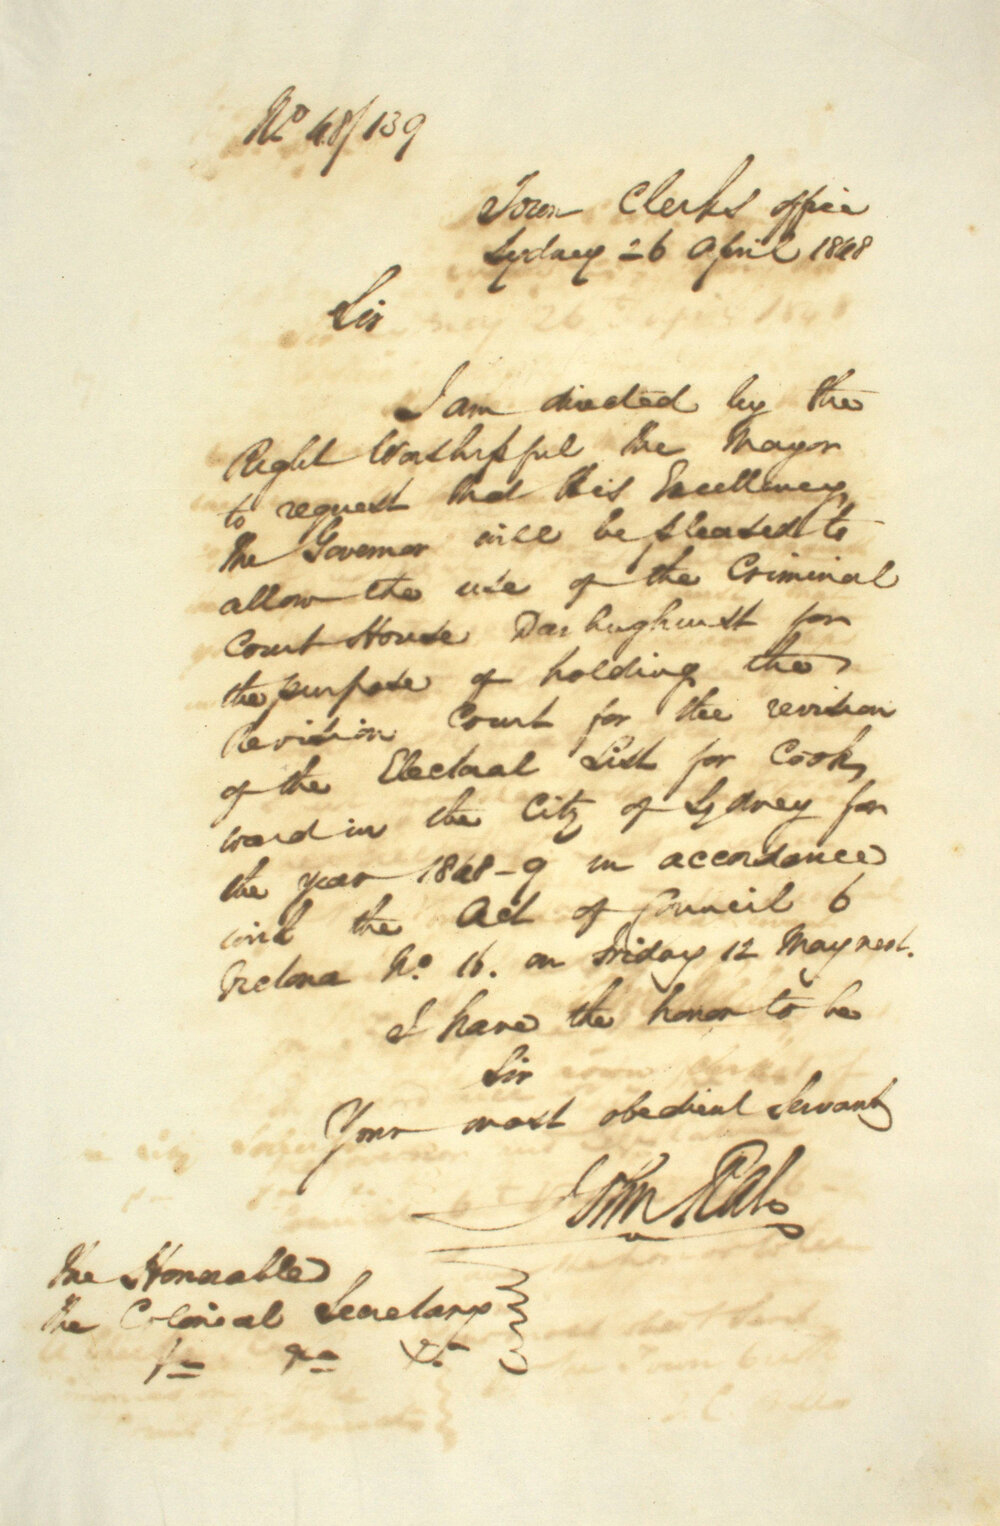 No 48/139
Town Clerks office
Sydney 26 April 1848
Sir
I am directed by the
Right Worshipful the Mayor
to request that His Excellency
the Governor will be pleased to
allow the use of the Criminal
Court House Darlinghurst for
the purpose of holding the
Revision Court for the revision
of the Electoral List for Cook
ward in the City of Sydney for
the year 1848-9 in accordance
with the Act of Council 6
Victoria No. 16. on Friday 12 May next.
I have the honor to be
Sir
Your most obedient Servant
John
The Honorable
The Colonial Secretary